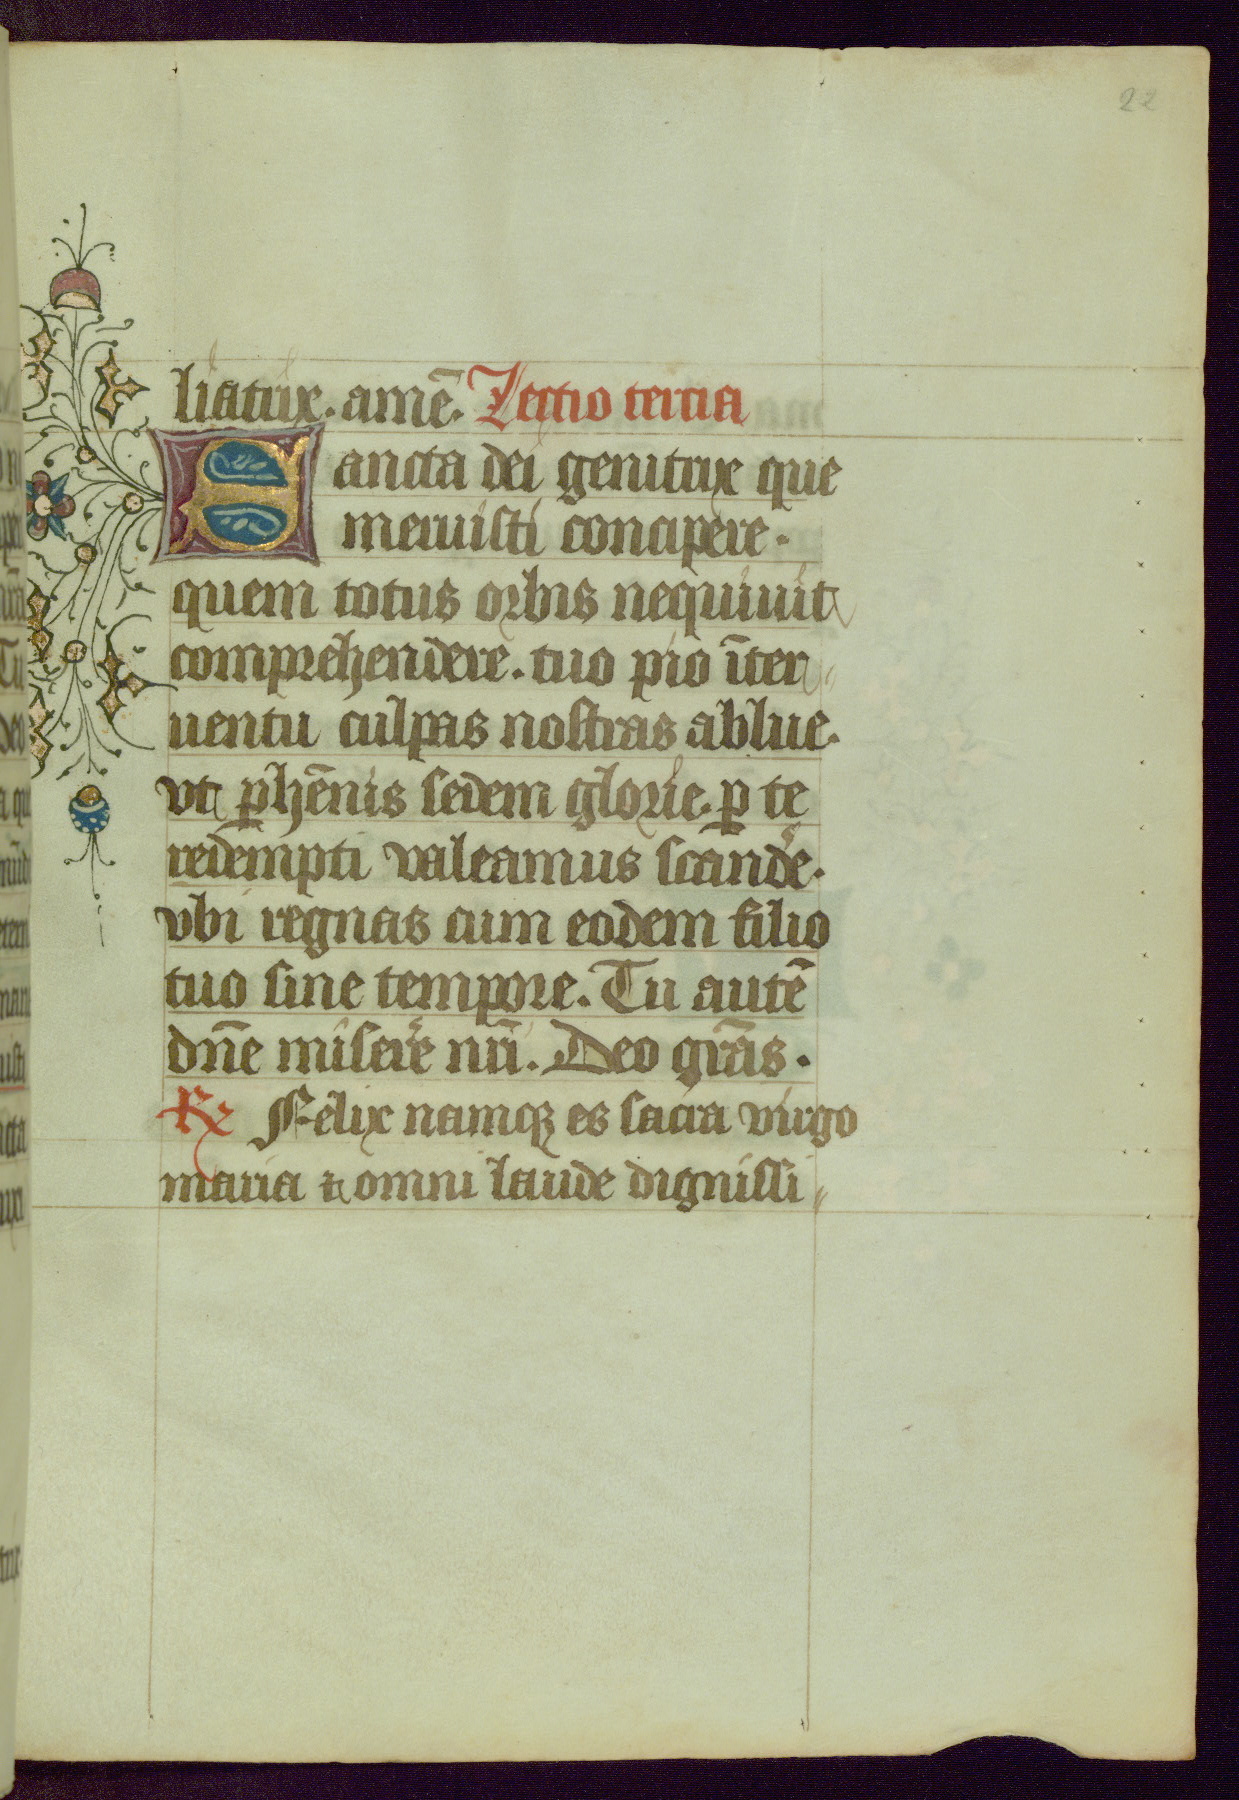 22
liatrix. amē. Lectio tercia
Sancta dei genitrix que
meruisti concipere.
quem totus orbis nequiuit
comprehendere. tuo pio īter
uentu culpas nostras ablue.
vt ꝑhēnis sedem glorie. ꝑ te
redempti valeamus scandẻe.
vbi regnas cum eodem filio
tuo sine tempore. Tu autē
dn̄e miserẻe nr̄i. Deo gr̄as.
R℣ Felix namqꝫ es sacra virgo
maria ⁊ omni laude dignissi